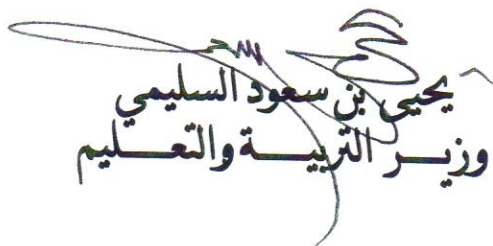 يحيى بن سعود السليمي
وزيـر التربيـة والتعليـم